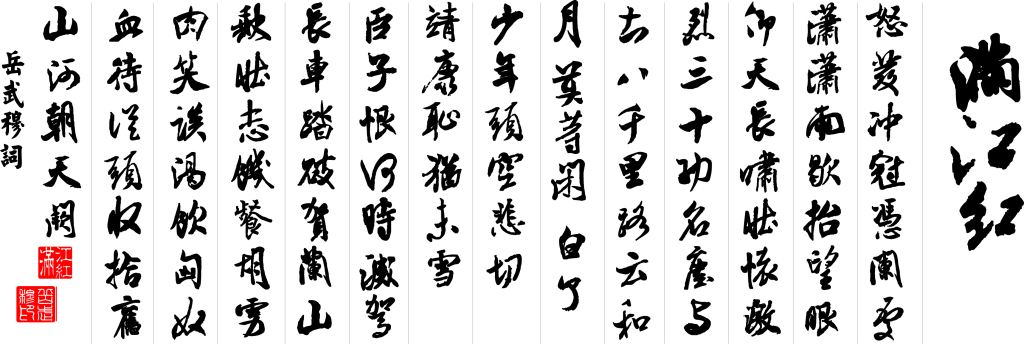 滿江紅
怒發冲冠憑闌處
瀟瀟雨歇抬望眼
仰天長嘯壯懷激
烈三十功名塵与
土八千里路云和
月莫等閑白了
少年頭空悲切
靖康恥猶未雪
臣子恨何時滅駕
長車踏破賀蘭山
缺壯志饑餐胡虜
肉笑談渴飲匈奴
血待從頭收拾舊
山河朝天闕
岳武穆詞
江紅滿
岳武穆印